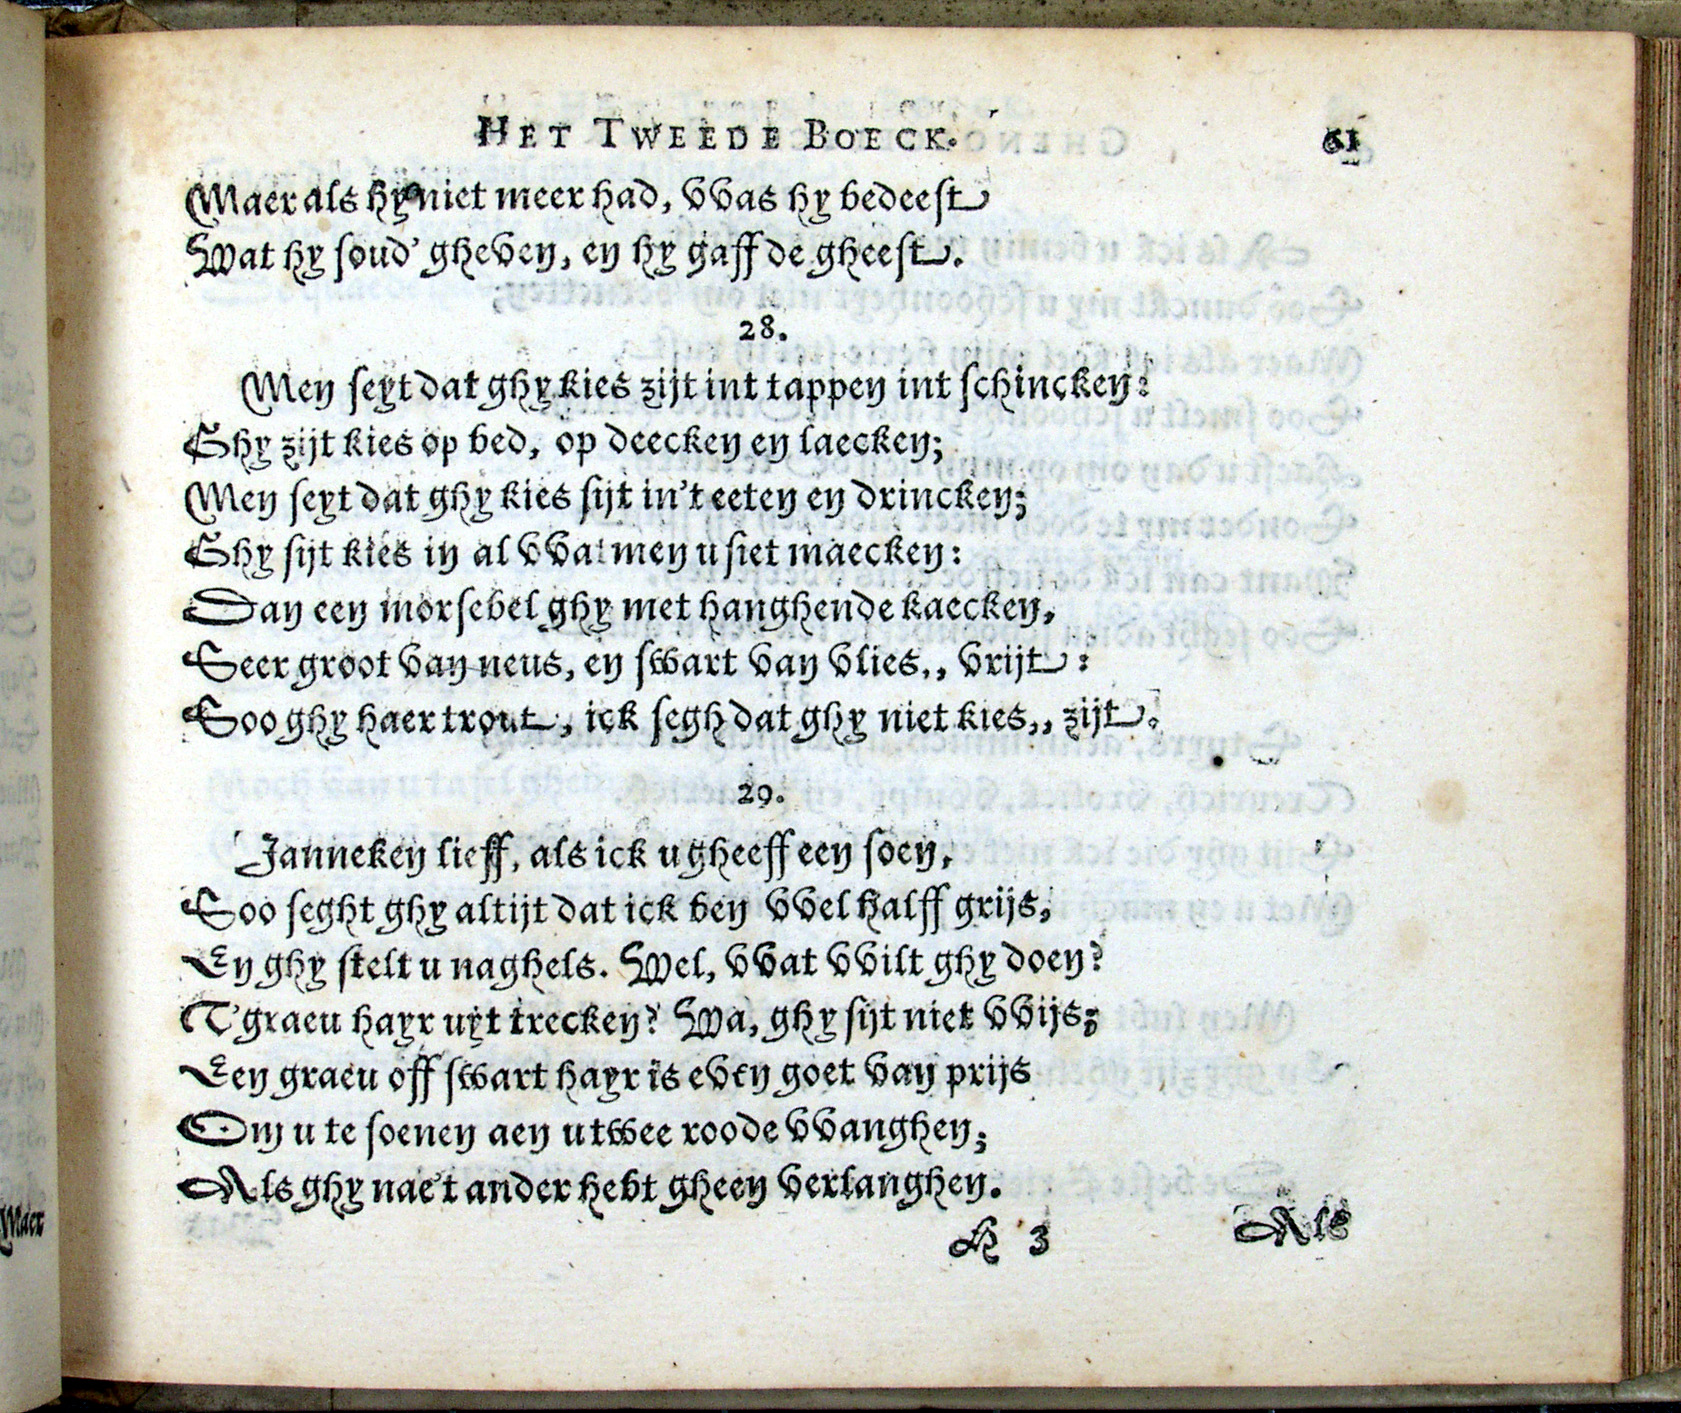 HET TWEEDE BOECK.
61
Maer als hy niet meer had, vvas hy bedeest
Wat hy soud' gheven, en hy gaff de gheest.
28.
Men seyt dat ghy kies zijt int tappen int schincken:
Ghy zijt kies op bed, op deecken en laecken;
Men seyt dat ghy kies sijt in't eeten en drincken;
Ghy sijt kies in al vvat men u siet maecken:
Dan een morsebel ghy met hanghende kaecken,
Seer groot van neus, en swart van vlies,, vrijt:
Soo ghy haer trout, ick segh dat ghy niet kies,, zijt.
29.
Janneken lieff, als ick u gheeff een soen,
Soo seght ghy altijt dat ick ben vvel halff grijs,
En ghy stelt u naghels. Wel, vvat vvilt ghy doen?
T'graeu hayr uyt trecken? Wa, ghy sijt niet vvijs;
Een graeu off swart hayr is even goet van prijs
Om u te soenen aen u twee roode vvanghen;
Als ghy nae't ander hebt gheen verlanghen.
H 3
Als
Maer